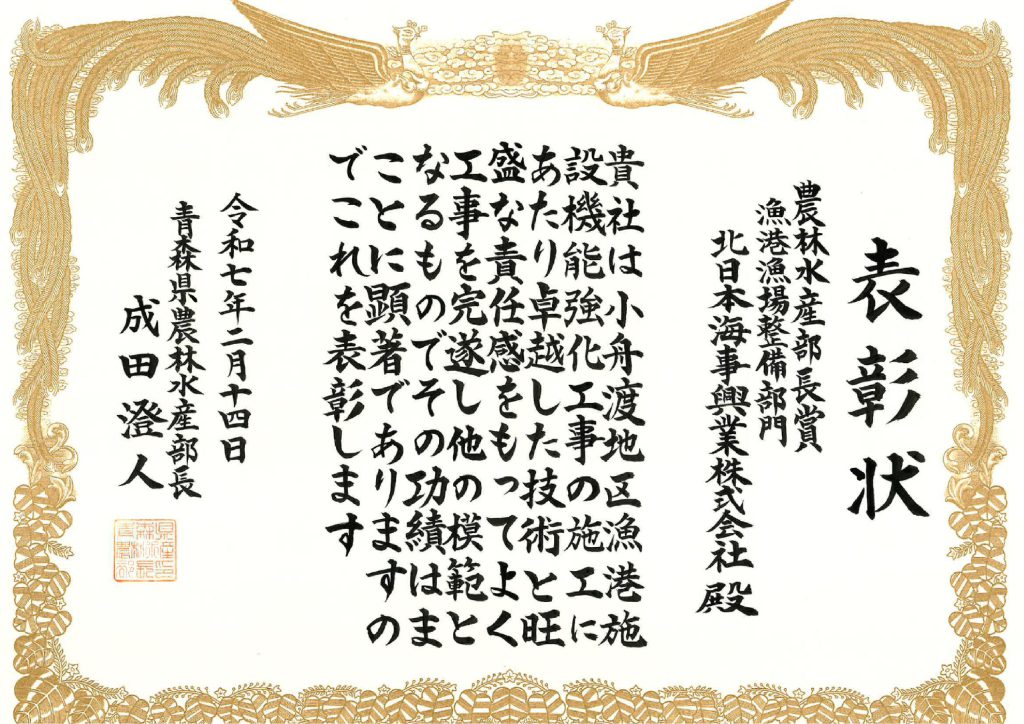 表彰状
農林水産部長賞
漁港漁場整備部門
北日本海事興業株式会社 殿
貴社は小舟渡地区漁港施
設機能強化工事の施工に
あたり卓越した技術と旺
盛な責任感をもってよく
工事を完遂し他の模範と
なるものでその功績はま
ことに顕著でありますの
でこれを表彰します
令和七年二月十四日
青森県農林水産部長
成田澄人